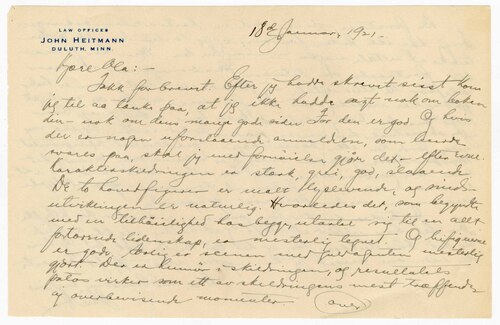 LAW OFFICES
JOHN HEITMANN
DULUTH, MINN.
18de Januar, 1921.
Kjære Ola:-
Takk for brevet. Efter jeg hadde skrevet sisst kom
jeg til aa tænke paa, at jeg ikke hadde sagt nok om boken
din - nok om dens mange gode sider. For den er god. Og hvis
der er nogen uforstaaende anmeldelse, som burde
svares paa, skal jeg med fornøielse gjøre det - efter evne.
Karakterskildringen er sterk, grei, god, slaaende.
De to hovedfigurer er malt lyslevende, og
utviklingen er naturlig. Hvorledes det, som begyndte
med en tilfældighet has begge, utartet sig til en alt-
fortærende lidenskap, er mesterlig tegnet. Og bifigurene
er gode. Særlig er scenen med mesterlig
gjort. Der er humør i skildringen, og
patos virker som ett av skildringens mest træffende
og overbevisende momenter. (over)